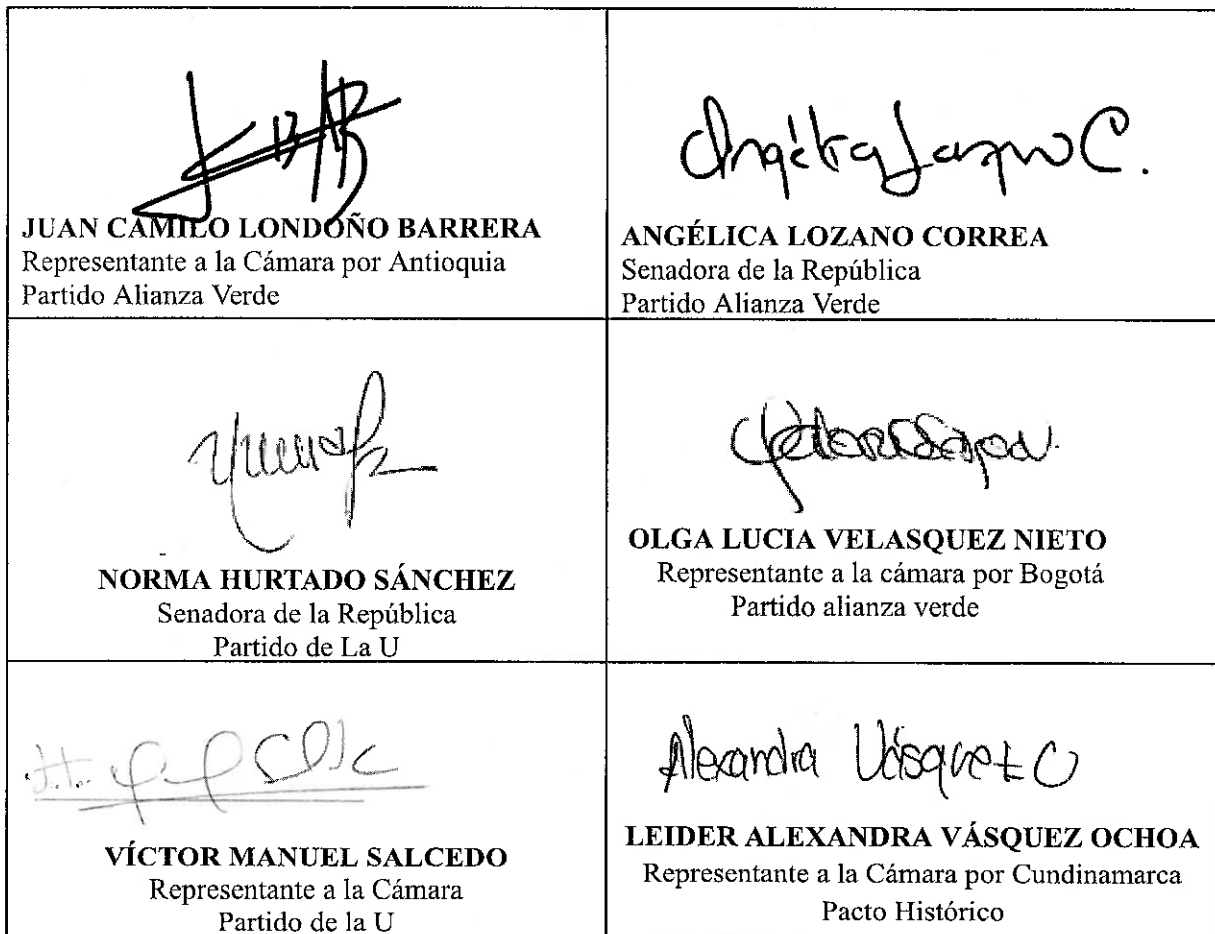 Angélica Lozano C.
JUAN CAMILO LONDOÑO BARRERA
Representante a la Cámara por Antioquia
Partido Alianza Verde
ANGÉLICA LOZANO CORREA
Senadora de la República
Partido Alianza Verde
NORMA HURTADO SÁNCHEZ
Senadora de la República
Partido de La U
OLGA LUCIA VELASQUEZ NIETO
Representante a la cámara por Bogotá
Partido alianza verde
VÍCTOR MANUEL SALCEDO
Representante a la Cámara
Partido de la U
Alexandra Vásquez O
LEIDER ALEXANDRA VÁSQUEZ OCHOA
Representante a la Cámara por Cundinamarca
Pacto Histórico